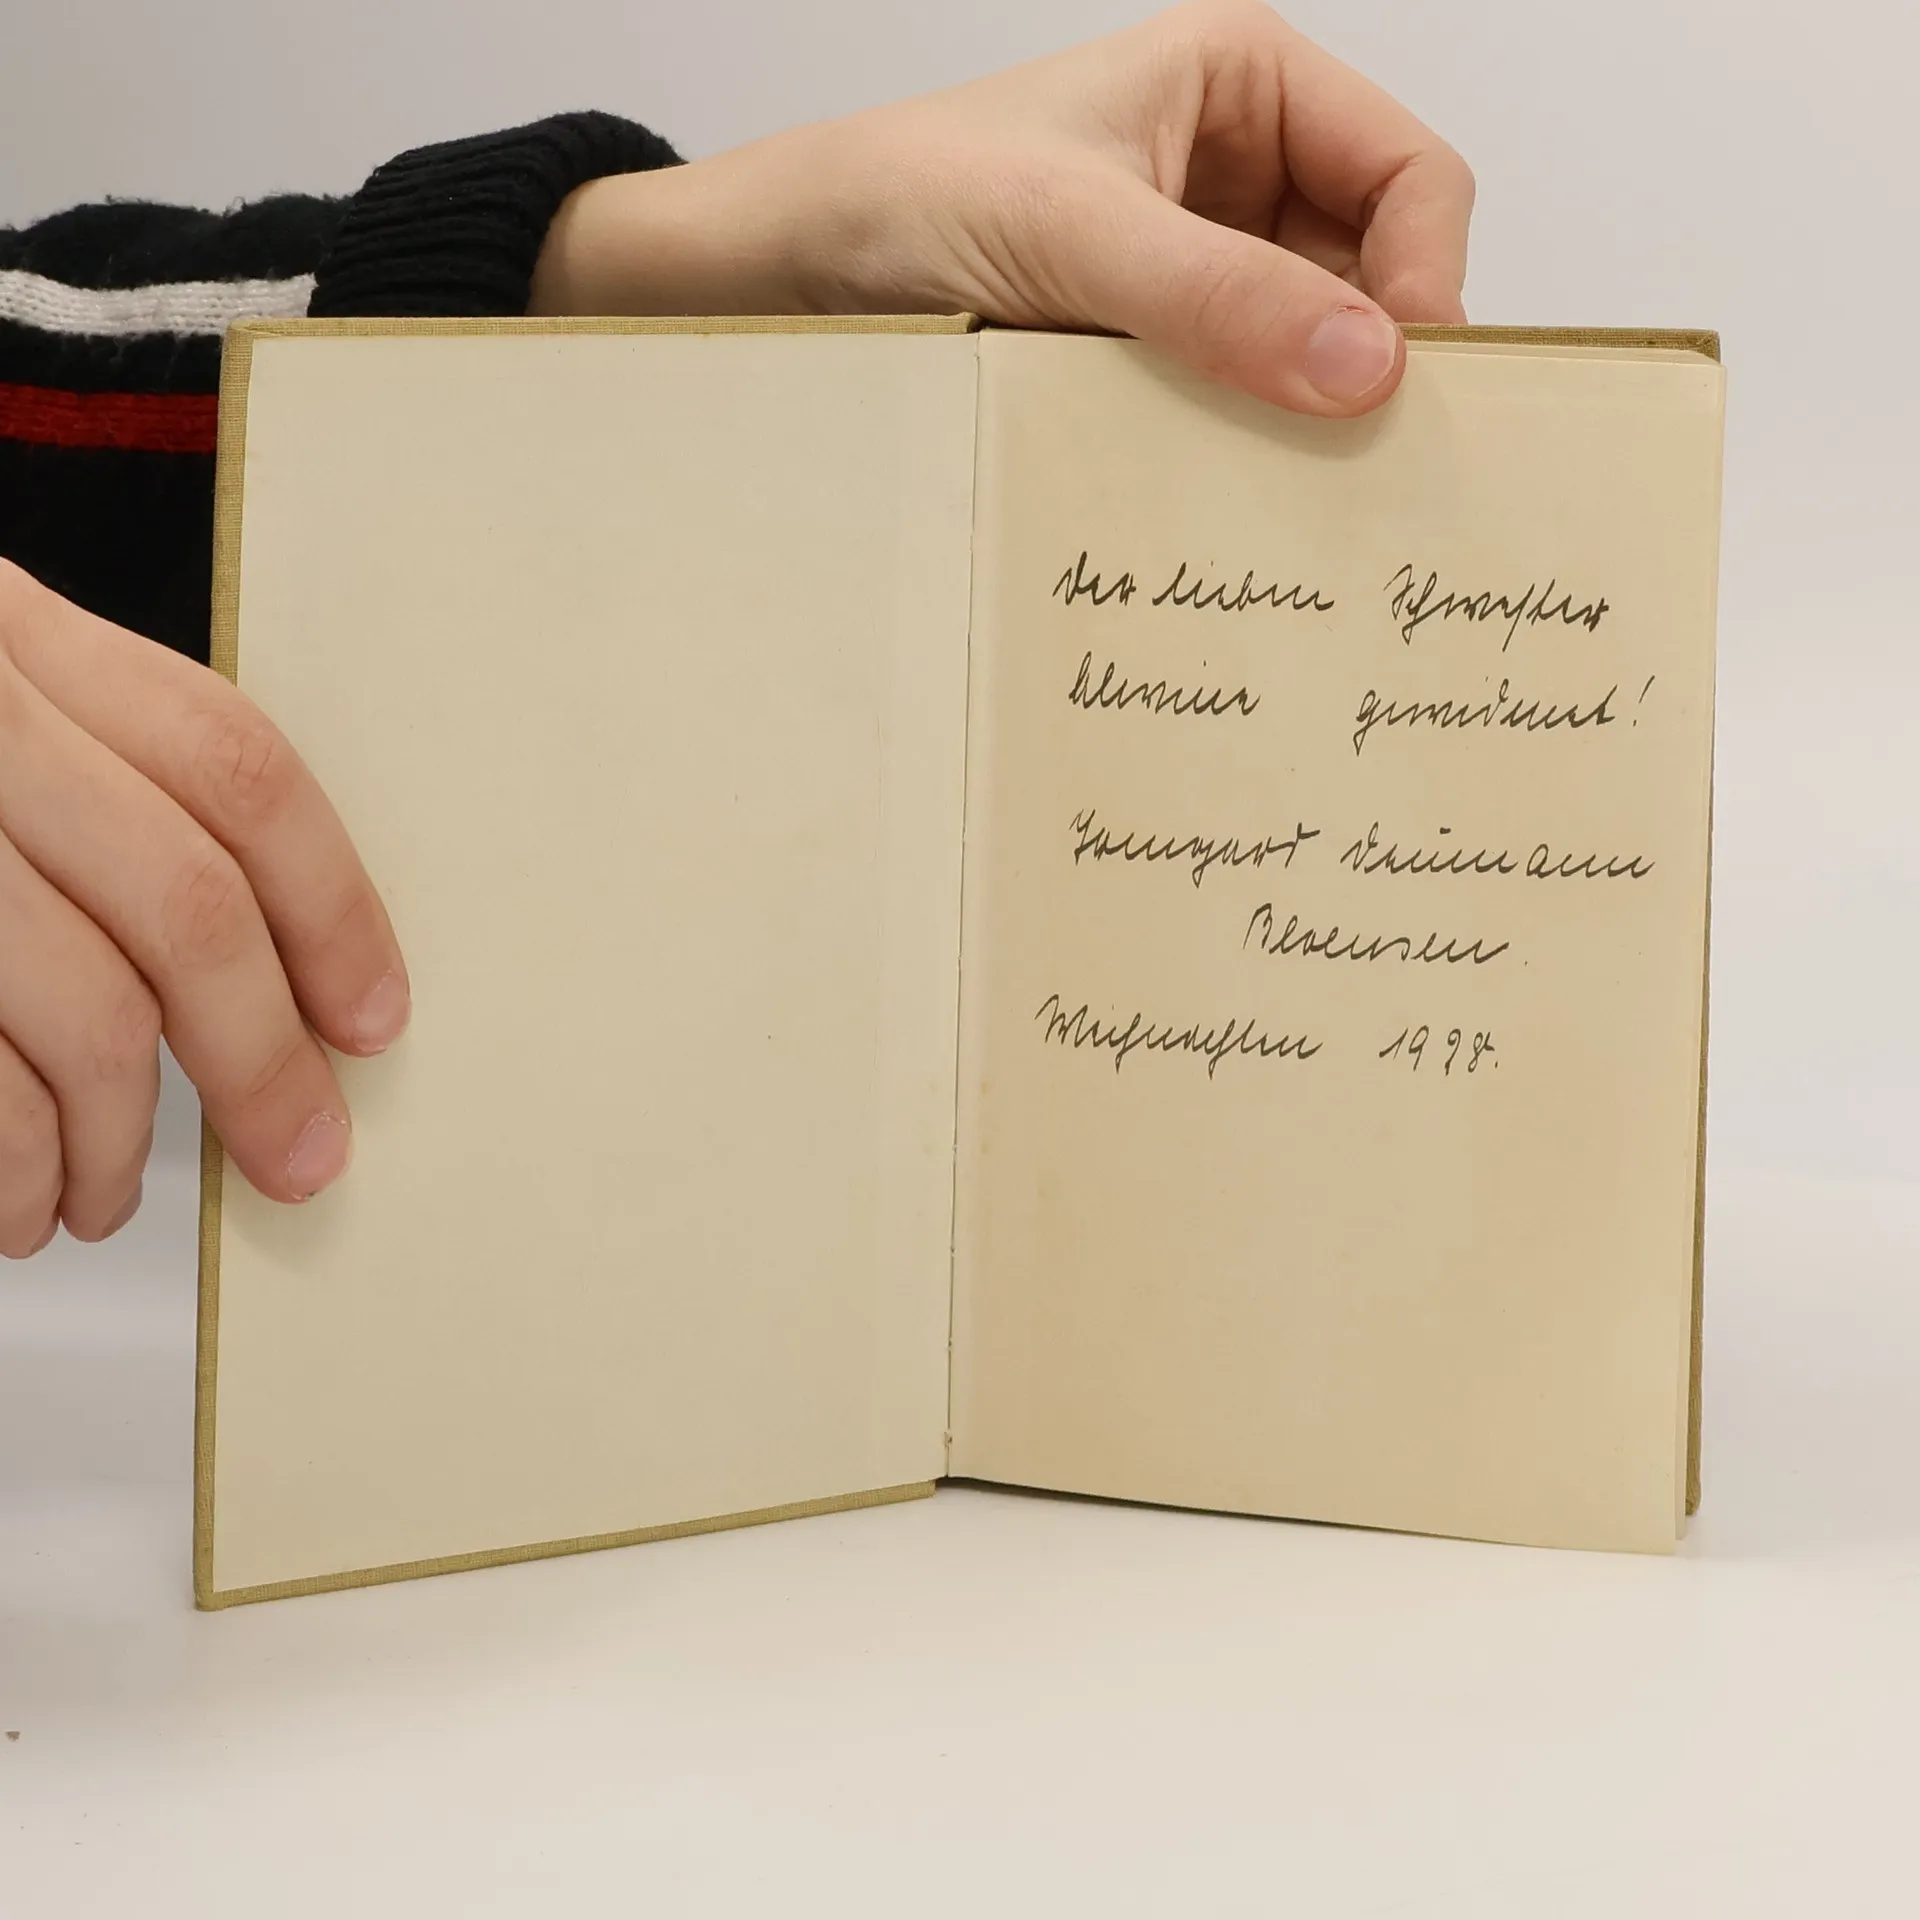 Der lieben Schwester
Alwine gewidmet!
Irmgard Deumann
Bevensen.
Weihnachten 1928.